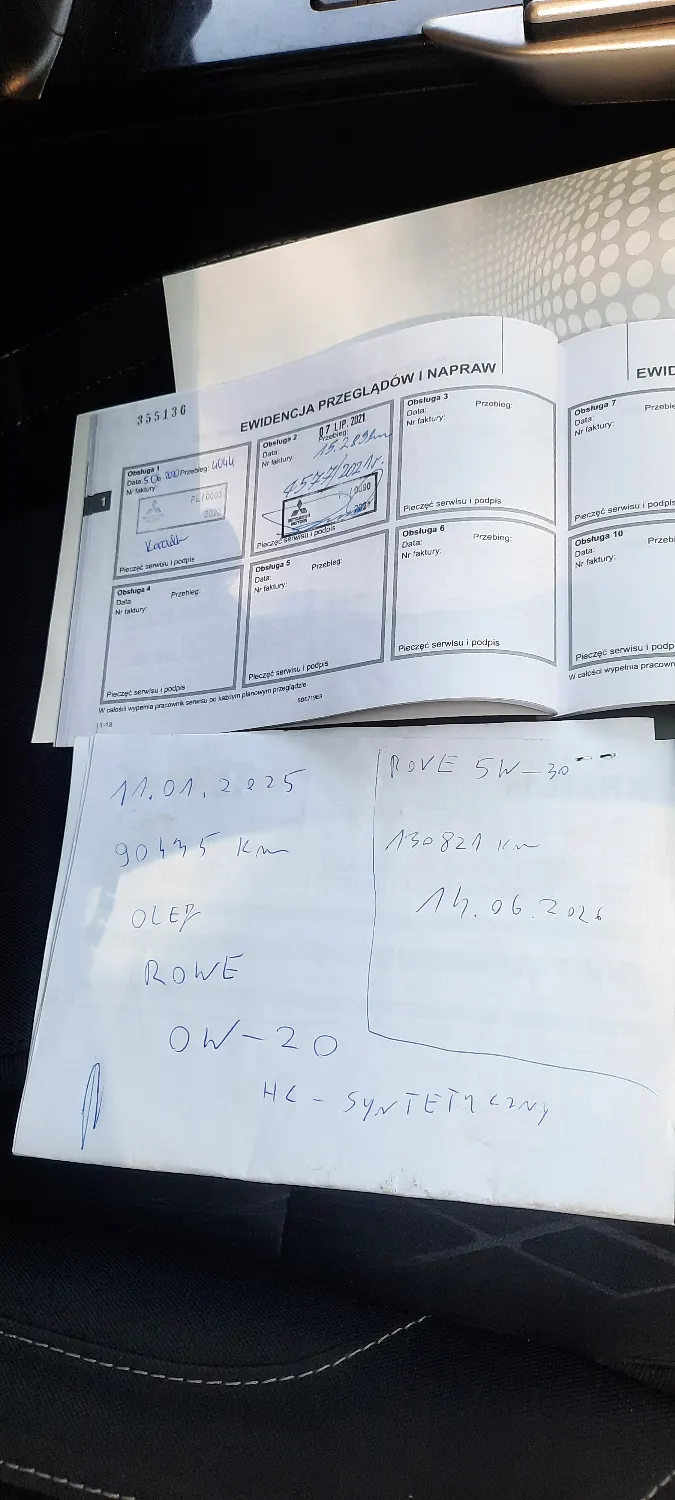 355136
EWIDENCJA PRZEGLĄDÓW I NAPRAW
EWID
1
Obsługa 1
Data 5.06.2020 Przebieg: 4044
Nr faktury:
PL/0003
2020
Pieczęć serwisu i podpis
Obsługa 2
07 LIP. 2021
Data:
Przebieg:
15.289km
Nr faktury:
4577/2021r.
MITSUBISHI
MOTORS
Pieczęć serwisu i podpis
Obsługa 3
Data:
Przebieg:
Nr faktury:
Pieczęć serwisu i podpis
Obsługa 7
Data:
Przebie
Nr faktury:
Pieczęć serwisu i podpis
Obsługa 4
Data:
Przebieg:
Nr faktury:
Pieczęć serwisu i podpis
Obsługa 5
Data:
Przebieg:
Nr faktury:
Pieczęć serwisu i podpis
Obsługa 6
Data:
Przebieg:
Nr faktury:
Pieczęć serwisu i podpis
Obsługa 10
Data:
Przeb
Nr faktury:
Pieczęć serwisu i podp
W całości wypełnia pracownik serwisu po każdym planowym przeglądzie
W całości wypełnia pracown
11-18
11.01.2025
90445 Km
OLEJ
ROWE
0W-20
HC - SYNTETYCZNY
ROVE 5W-30
130821 Km
14.06.2026